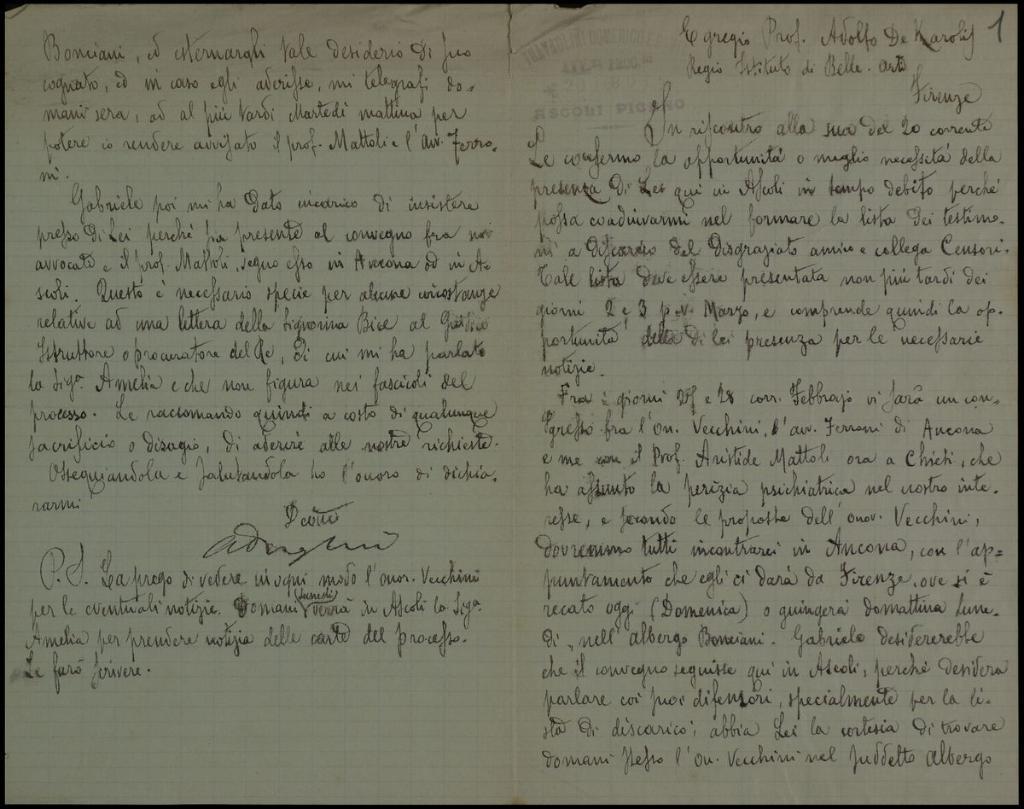 1
Egregio Prof. Adolfo De Karolis
Regio Istituto di Belle-Arti
Firenze
ASCOLI PICENO
In riscontro alla sua del 20 corrente
Le confermo la opportunità o meglio necessità della
presenza di Lei qui in Ascoli in tempo debito perché
possa coadiuvarmi nel formare la lista dei testimo-
ni a discarico del disgraziato amico e collega Censori.
Tale lista deve essere presentata non più tardi dei
giorni 2 e 3 p.v. Marzo, e comprende quindi la op-
portunità della di lei presenza per le necessarie
notizie.
Fra i giorni 27 e 28 corr. Febbrajo vi sarà un con-
gresso fra l'on. Vecchini, l'avv. Ferroni di Ancona
e me con il Prof. Aristide Mattoli ora a Chieti, che
ha assunto la perizia psichiatrica nel nostro inte-
resse, e secondo le proposte dell'onor. Vecchini,
dovremmo tutti incontrarci in Ancona, con l'ap-
puntamento che egli ci darà da Firenze, ove si è
recato oggi (Domenica) o giungerà domattina lune-
dì, nell'albergo Bonciani. Gabriele desidererebbe
che il convegno seguisse qui in Ascoli, perché desidera
parlare coi suoi difensori, specialmente per la li-
sta di discarico; abbia Lei la cortesia di trovare
domani stesso l'on. Vecchini nel suddetto albergo
Bonciani, ed esternargli tale desiderio di suo
cognato, ed in caso egli aderisse, mi telegrafi do-
mani sera, od al più tardi Martedì mattina per
potere io rendere avvisato il prof. Mattoli e l'avv. Ferro-
ni.
Gabriele poi mi ha dato incarico di insistere
presso di Lei perché sia presente al convegno fra noi
avvocati e il prof. Mattoli, segua esso in Ancona od in A-
scoli. Questo è necessario specie per alcune circostanze
relative ad una lettera della signorina Bice al Giudice
Istruttore o procuratore del Re, di cui mi ha parlato
la Sigra. Amelia e che non figura nei fascicoli del
processo. Le raccomando quindi a costo di qualunque
sacrificio o disagio, di aderire alle nostre richieste.
Ossequiandola e salutandola ho l'onore di dichia-
rarmi
Devmo
P.S. La prego di vedere in ogni modo l'onor. Vecchini
per le eventuali notizie. Domani (lunedì) verrà in Ascoli la Siga.
Amelia per prendere notizia delle carte del processo.
Le farò scrivere.